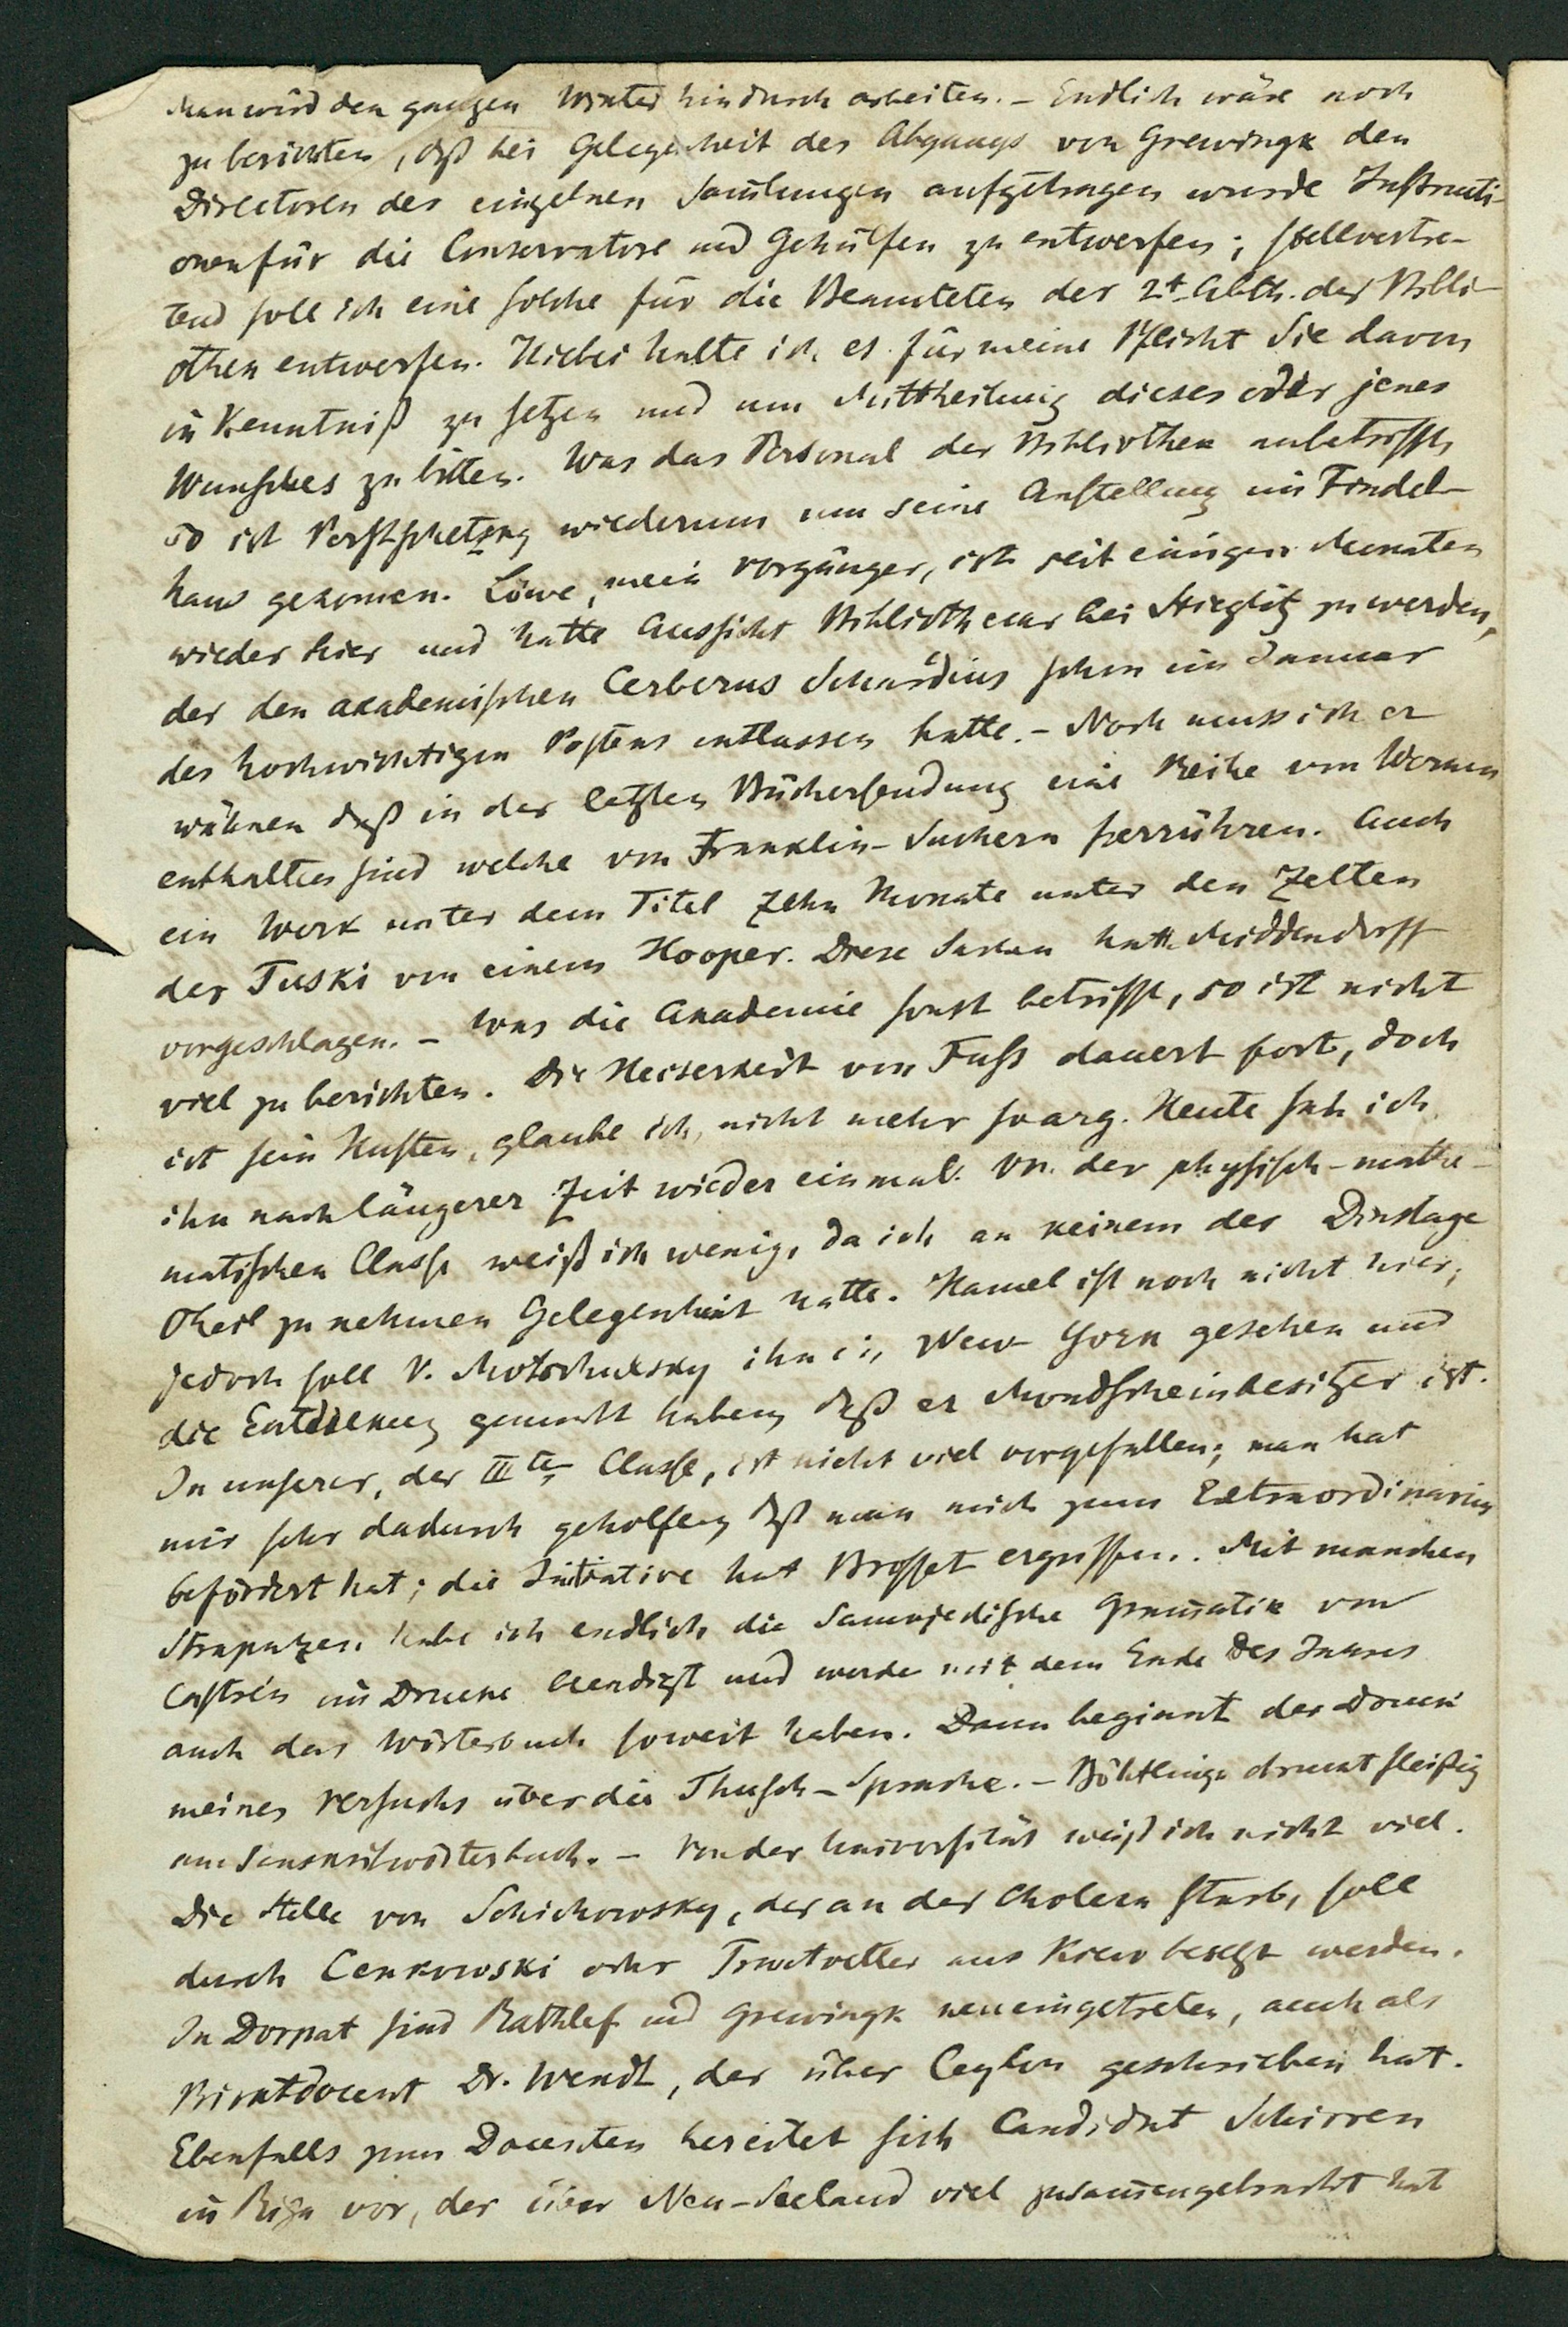 Man wird den ganzen Winter hindurch arbeiten. – Endlich wäre noch
zu berichten, dß bei Gelegenheit des Abgangs von Grewingk den
Directoren der einzelnen Sam̄lungen aufgetragen wurde Instructi-
onen für die Conservatore und Gehülfen zu entwerfen; stellvertre-
tend soll ich eine solche für die Beamteten der 2t. Abth. der Bibli-
othek entwerfen. Hiebei halte ich es für meine Pflicht Sie davon
in Kenntniß zu setzen und um Mittheilung dieses oder jenes
Wunsches zu bitten. Was das Personal der Bibliothek anbetrifft,
so ist wiederum um seine Anstellung im Findel-
haus gekom̄en. Löwe, mein Vorgänger, ist seit einigen Monaten
wieder hier und hatte Aussicht Bibliothecar bei Stieglitz zu werden,
der den akademischen Cerberus Schardius schon im Januar
des hochwichtigen Postens entlassen hatte. – Noch muss ich er-
wähnen daß in der letzten Büchersendung eine Reihe von Werken
enthalten sind welche von Franklin-Suchern herrühren. Auch
ein Werk unter dem Titel Zehn Monate unter den Zelten
der Tuski von einem Hooper. Diese Sachen hatte Middendorff
vorgeschlagen. – Was die Akademie sonst betrifft, so ist nicht
viel zu berichten. Die Heiserkeit von Fuss dauert fort, doch
ist sein Husten, glaube ich, nicht mehr so arg. Heute sah ich
ihn nach längerer Zeit wieder einmal. Von der physisch-mathe-
matischen Classe weiß ich wenig, da ich an keinem der Dinstage
Theil zu nehmen Gelegenheit hatte. Hamel ist noch nicht hier;
jedoch soll V. Motschulsky ihn in New-York gesehen und
die Entdekung gemacht haben, daß er Mondscheinbesitzer ist.
In unserer, der IIIten Classe, ist nicht viel vorgefallen; man hat
mir sehr dadurch geholfen, dß man mich zum Extraordinarius
befördert hat; die Initiative hat Brosset ergriffen. Mit manchen
Strapazen habe ich endlich die Samojedische Gram̄atik von
Castrén im Drucke beendigt und werde mit dem Ende des Jahres
auch das Wörterbuch soweit haben. Dann beginnt der Druck
meines Versuchs über die Thusch-Sprache. – Böhtlingk druckt fleißig
am Sanskritwörterbuch. – Von der Universität weiß ich nicht viel.
Die Stelle von Schichowsky, der an der Cholera starb, soll
durch Cenkowski oder Trautvetter aus Kiew besetzt werden.
In Dorpat sind Rathlef und Grewingk neu eingetreten, auch als
Privatdocent Dr. Wendt, der über Ceylon geschrieben hat.
Ebenfalls zum Docenten bereitet sich Candidat Schirren
in Riga vor, der über Neu-Seeland viel zusam̄engebracht hat